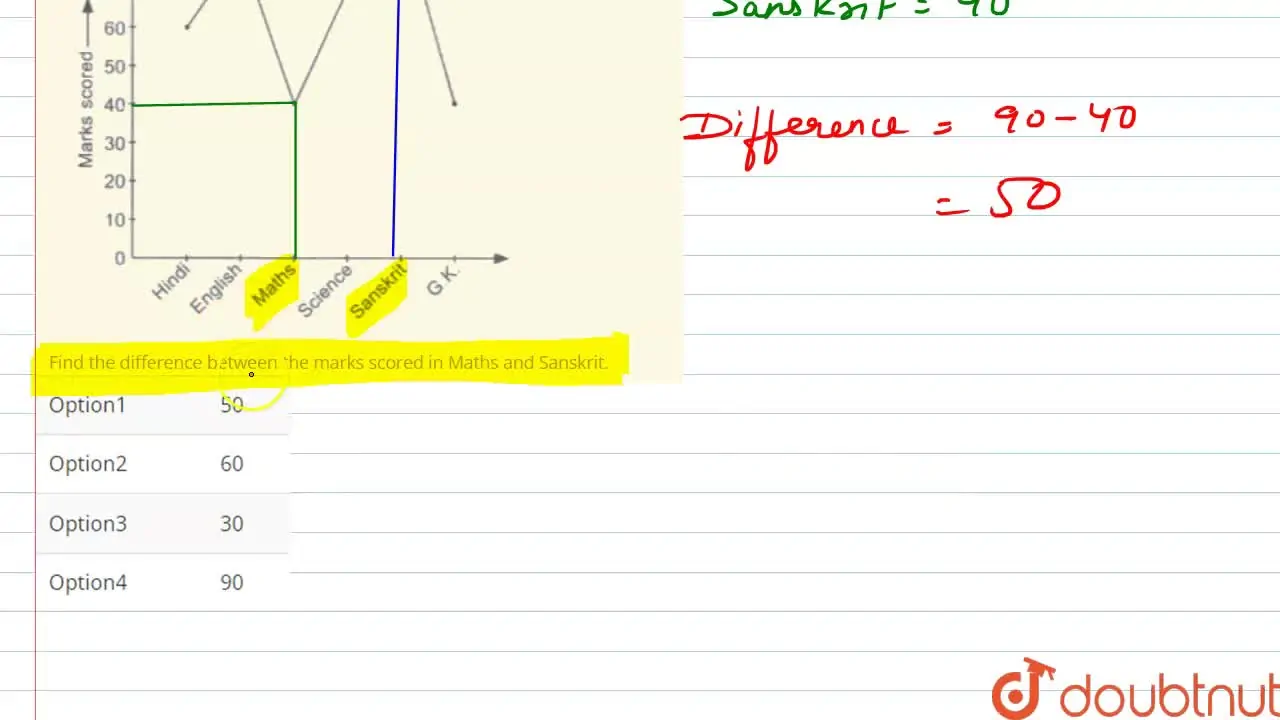 Sanskrit = 90
60
50
40
30
20
10
0
Marks scored
Hindi
English
Maths
Science
Sanskrit
G.K.
Difference = 90-40
= 50
Find the difference between the marks scored in Maths and Sanskrit.
Option1 50
Option2 60
Option3 30
Option4 90
doubtnut